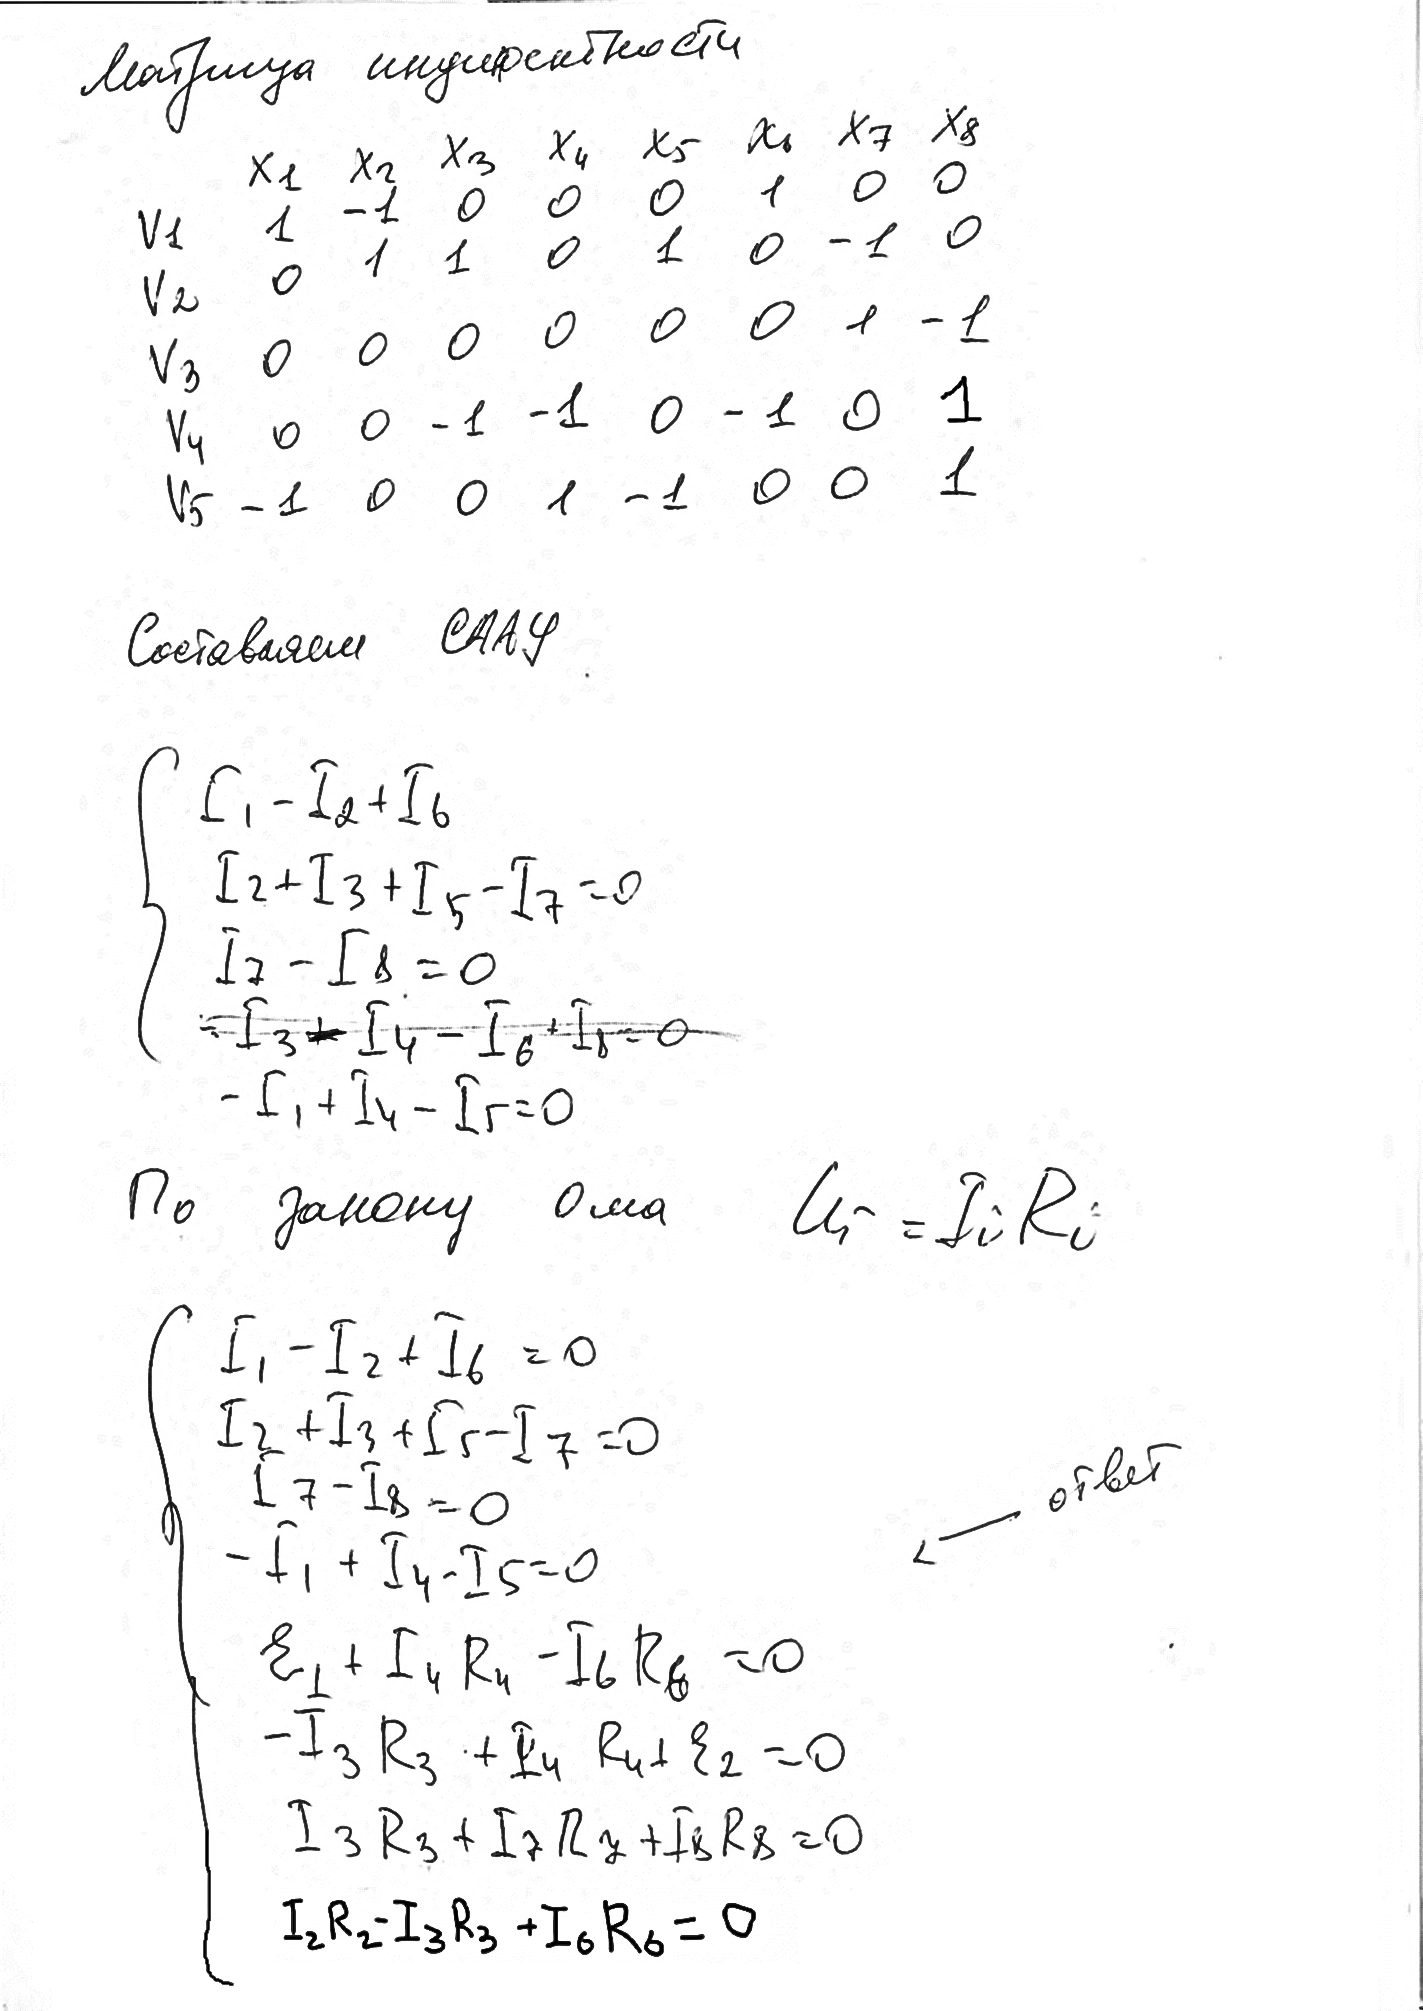 Матрица индифентности
x1 x2 x3 x4 x5 x6 x7 x8
V1 1 -1 0 0 0 1 0 0
V2 0 1 1 0 1 0 -1 0
V3 0 0 0 0 0 0 1 -1
V4 0 0 -1 -1 0 -1 0 1
V5 -1 0 0 1 -1 0 0 1
Составляем СЛАУ
I1 - I2 + I6
I2 + I3 + I5 - I7 = 0
I7 - I8 = 0
-I3 - I4 - I6 + I8 = 0
-I1 + I4 - I5 = 0
По закону Ома Ui = Ii Ri
I1 - I2 + I6 = 0
I2 + I3 + I5 - I7 = 0
I7 - I8 = 0
ответ
-I1 + I4 - I5 = 0
ε1 + I4 R4 - I6 R6 = 0
-I3 R3 + I4 R4 + ε2 = 0
I3 R3 + I7 R7 + I8 R8 = 0
I2 R2 - I3 R3 + I6 R6 = 0